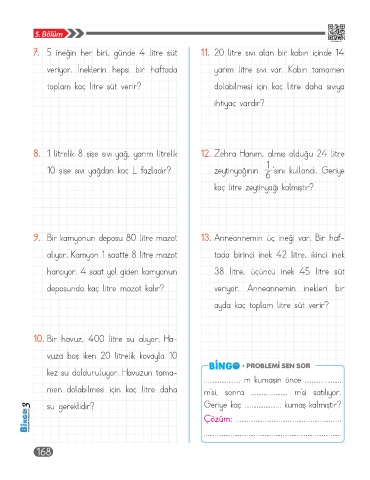 5. Bölüm
7. 5 ineğin her biri, günde 4 litre süt
veriyor. İneklerin hepsi bir haftada
toplam kaç litre süt verir?
8. 1 litrelik 8 şişe sıvı yağ, yarım litrelik
10 şişe sıvı yağdan kaç L fazladır?
9. Bir kamyonun deposu 80 litre mazot
alıyor. Kamyon 1 saatte 8 litre mazot
harcıyor. 4 saat yol giden kamyonun
deposunda kaç litre mazot kalır?
10. Bir havuz, 400 litre su alıyor. Ha-
vuza boş iken 20 litrelik kovayla 10
kez su dolduruluyor. Havuzun tama-
men dolabilmesi için kaç litre daha
su gereklidir?
11. 20 litre sıvı alan bir kabın içinde 14
yarım litre sıvı var. Kabın tamamen
dolabilmesi için kaç litre daha sıvıya
ihtiyaç vardır?
12. Zehra Hanım, almış olduğu 24 litre
zeytinyağının 1/6 'sını kullandı. Geriye
kaç litre zeytinyağı kalmıştır?
13. Anneannemin üç ineği var. Bir haf-
tada birinci inek 42 litre, ikinci inek
38 litre, üçüncü inek 45 litre süt
veriyor. Anneannemin inekleri bir
ayda kaç toplam litre süt verir?
BİNGO • PROBLEMİ SEN SOR
.................. m kumaşın önce ..................
m'si, sonra .................. m'si satılıyor.
Geriye kaç .................. kumaş kalmıştır?
Çözüm: ..................................................
..................................................................
BİNGO 3
168